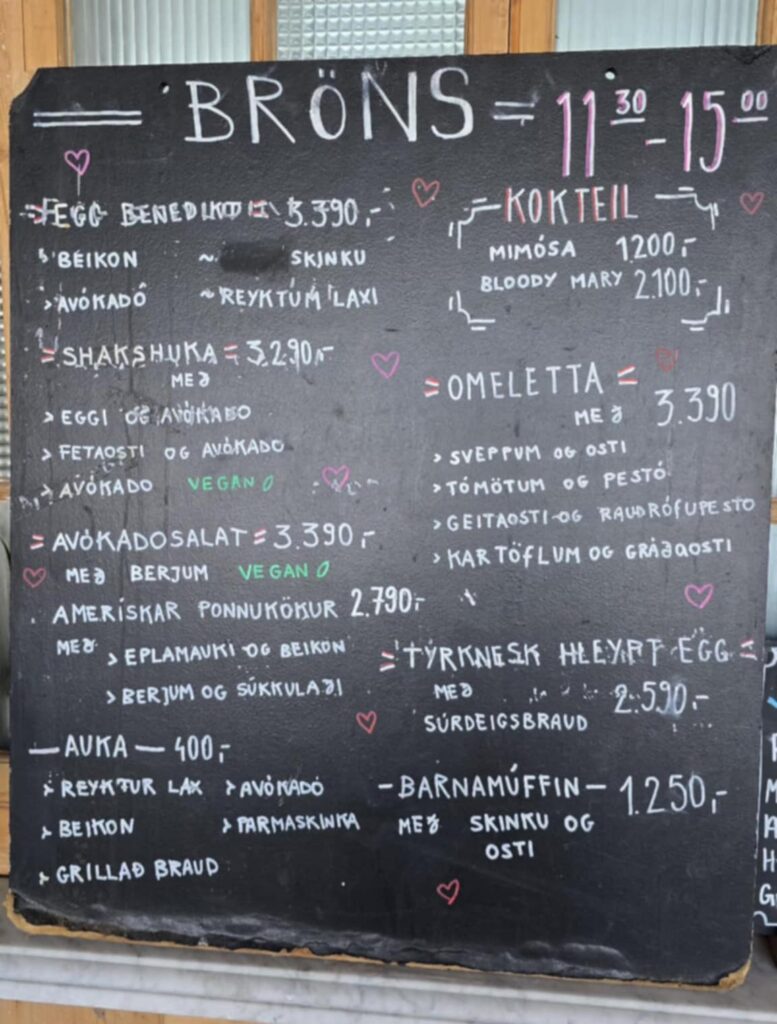 BRÖNS 11 30 - 15 00
EGG BENEDIKT 3.390,-
BEIKON ~ SKINKU
> AVÓKADÓ ~ REYKTUM LAXI
= SHAKSHUKA = 3.290,-
MEÐ
> EGGI OG AVÓKADO
> FETAOSTI OG AVÓKADO
> AVÓKADO VEGAN
= AVÓKADOSALAT = 3.390,-
MEÐ BERJUM VEGAN
AMERÍSKAR PONNUKÖKUR 2.790,-
MEÐ > EPLAMAUKI OG BEIKON
> BERJUM OG SÚKKULAÐI
— AUKA — 400,-
> REYKTUR LAX > AVÓKADÓ
> BEIKON > PARMASKINKA
> GRILLAÐ BRAUD
KOKTEIL
MIMÓSA 1200,-
BLOODY MARY 2.100,-
= OMELETTA =
MEÐ 3.390
> SVEPPUM OG OSTI
> TÓMÖTUM OG PESTÓ
> GEITAOSTI OG RAUÐRÓFUPESTO
> KARTÖFLUM OG GRÁÐAOSTI
= TYRKNESK HLEYPT EGG =
MEÐ 2.590,-
SÚRDEIGSBRAUD
- BARNAMÚFFIN - 1.250,-
MEÐ SKINKU OG
OSTI